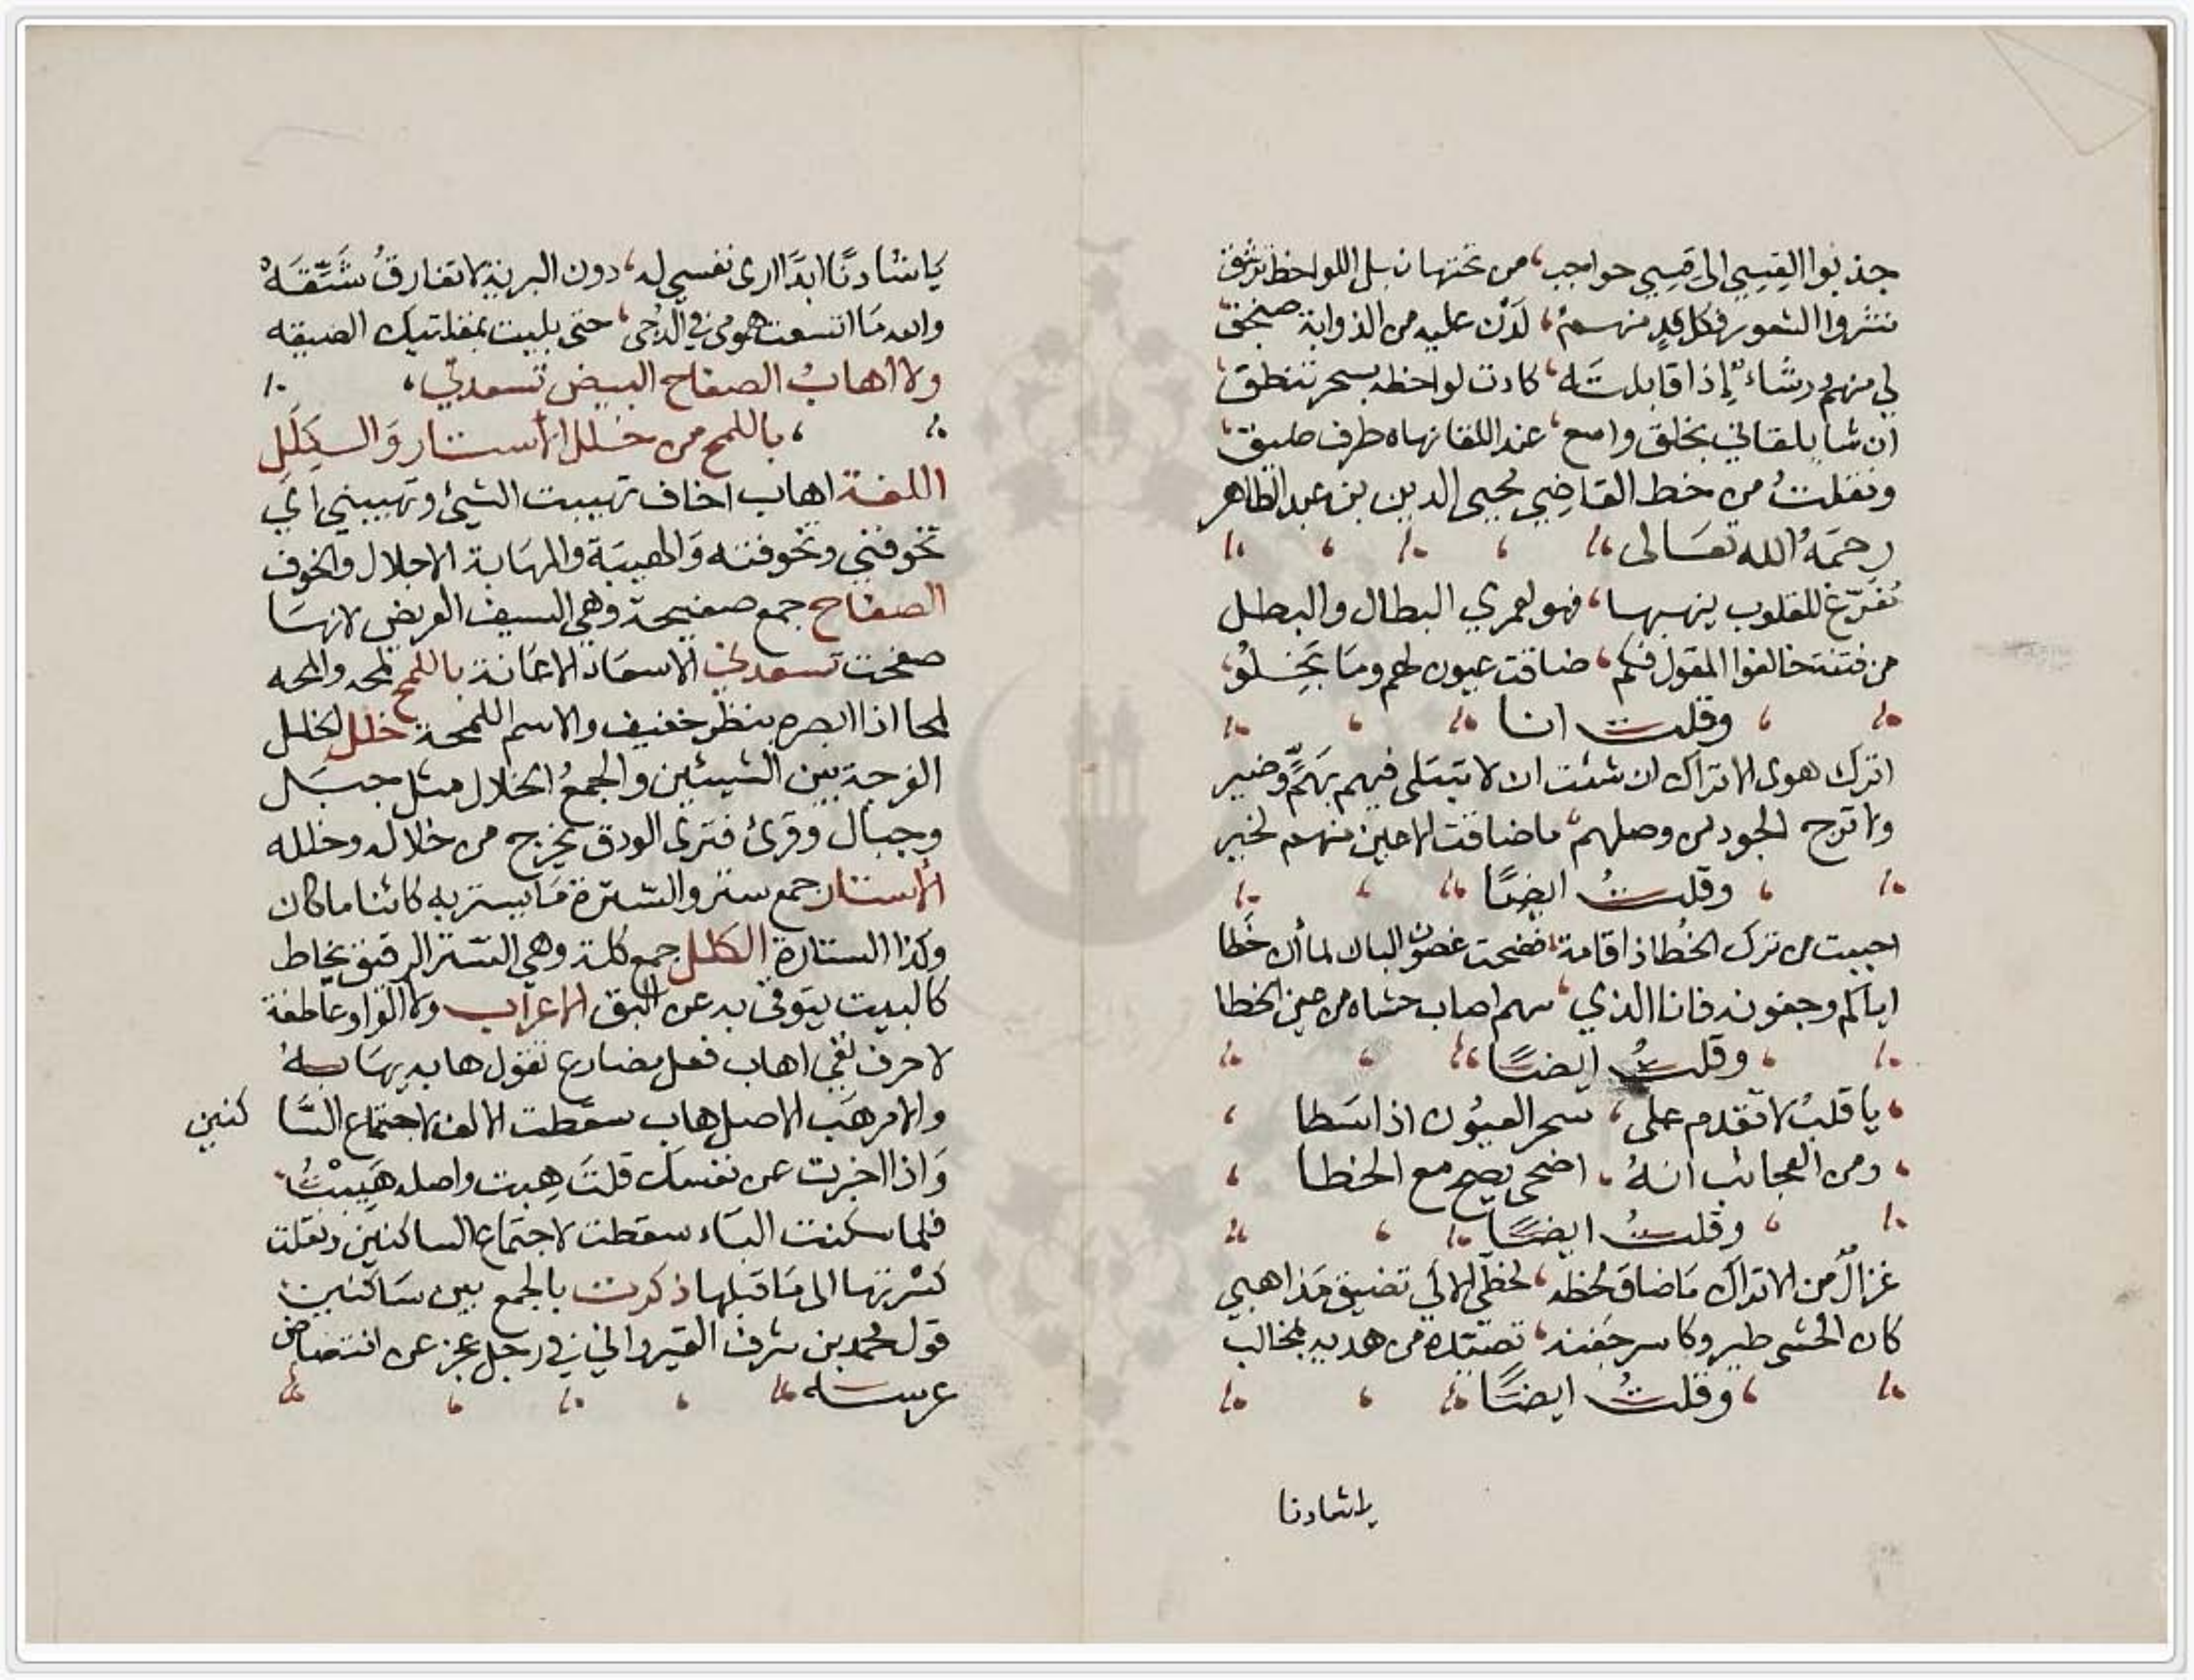 جذبوا القِسِي الى قِسِي حواجب، من تحتها نبل اللواحظ ترشق
نشروا الشعور فكل قدٍ منهم، لَدْن عليه من الذوابة صنجق
لي منهم رشاء إذا قابلته، كادت لواحظه بسحر تنطق
ان شا يلقاني بخلق واسع، عند اللقا نهاه طرف ضيق
ونقلتُ من خط القاضي محيى الدين بن عبد الظاهر
رحمَهُ الله تعَالى
للقلوب ينهبها، فهو لعمري البطال والبطل
المقول فكم، ضاقت عيون لهم وما بَخِلُو
وقلت انا
اترك هوى الاتراك ان شئت ان لا تبتلى فيهم بهَمّ وضير
ولا ترج الجود من وصلهم، ما ضاقت الاعين منهم لخير
وقلتُ ايضًا
احببت من ترك الخُطا ذا قامة، فضحت غصون البان لما أن خَطا
اياكم وجفونه فانا الذي، سهم اصاب حشاه من عين الخطا
وقلتُ ايضًا
يا قلبُ لا تقدم على، سحر العيُون اذا سَطا
ومن العجائب انهُ، اضحى يصح مع الخطا
وقلتُ ايضًا
غزالٌ من الاتراك مَا ضاق لحظه، الا لكي تضيق مَذاهبي
كان الحشى طير وكاسر جفنه، من هدبه بمخالب
وقلتُ ايضًا
يا شادنا
يَا شَادنًا ابدًا ارى نفسي له، دون البرية لا تفارقُ شَيّقَهْ
والله مَا اتسعت همومي في الدُجى، حتى بليت بمقلتيك الضيقه
ولا أهابُ الصفاح البيض تسعدني،
باللمح من خلل الأستار وَالكِلَل
اللغة اهاب اخاف تهيبت الشيئ وتهيبني اي
تخوفني وتخوفته وَالهيبَة والمهَابة الاجلال والخوف
الصفاح جمع صفيحة وهي السيف العريض لانهَا
صفحت تسعدني الاسعَاد الاعَانة باللمح لمحه والمحه
لمحا اذا ابصره بنظر خفيف والاسم اللمحة خلل الخلل
الفرجة بين الشيئين والجمعُ الخلال مثل جبَل
وجبال وقرئ فترى الودق يخرج من خلاله وخلله
الأستار جمع ستر والسترة مَا يستر به كائنا ما كان
وكذا الستارة الكلل جمع كلة وهي الستر الرقيق يخاط
كالبيت يتوقى به عن البق الاعراب ولا الواو عَاطفة
لا حرف نفي اهاب فعل مضارع تقول هابه يهَابهُ
والامر هَب الاصل هاب سقطت الالف لاجتماع السَّا كنين
وَاذا اخبرت عن نفسك قلتَ هِبت واصله هَيبْتُ
فلما سكنت اليَاء سقطت لاجتماع الساكنين ونقلت
كسْرتها الى مَا قبلها ذكرت بالجمع بين سَاكنين
قول محمد بن شرف القيرواني في رجل عجز عن افتضاض
عرسه